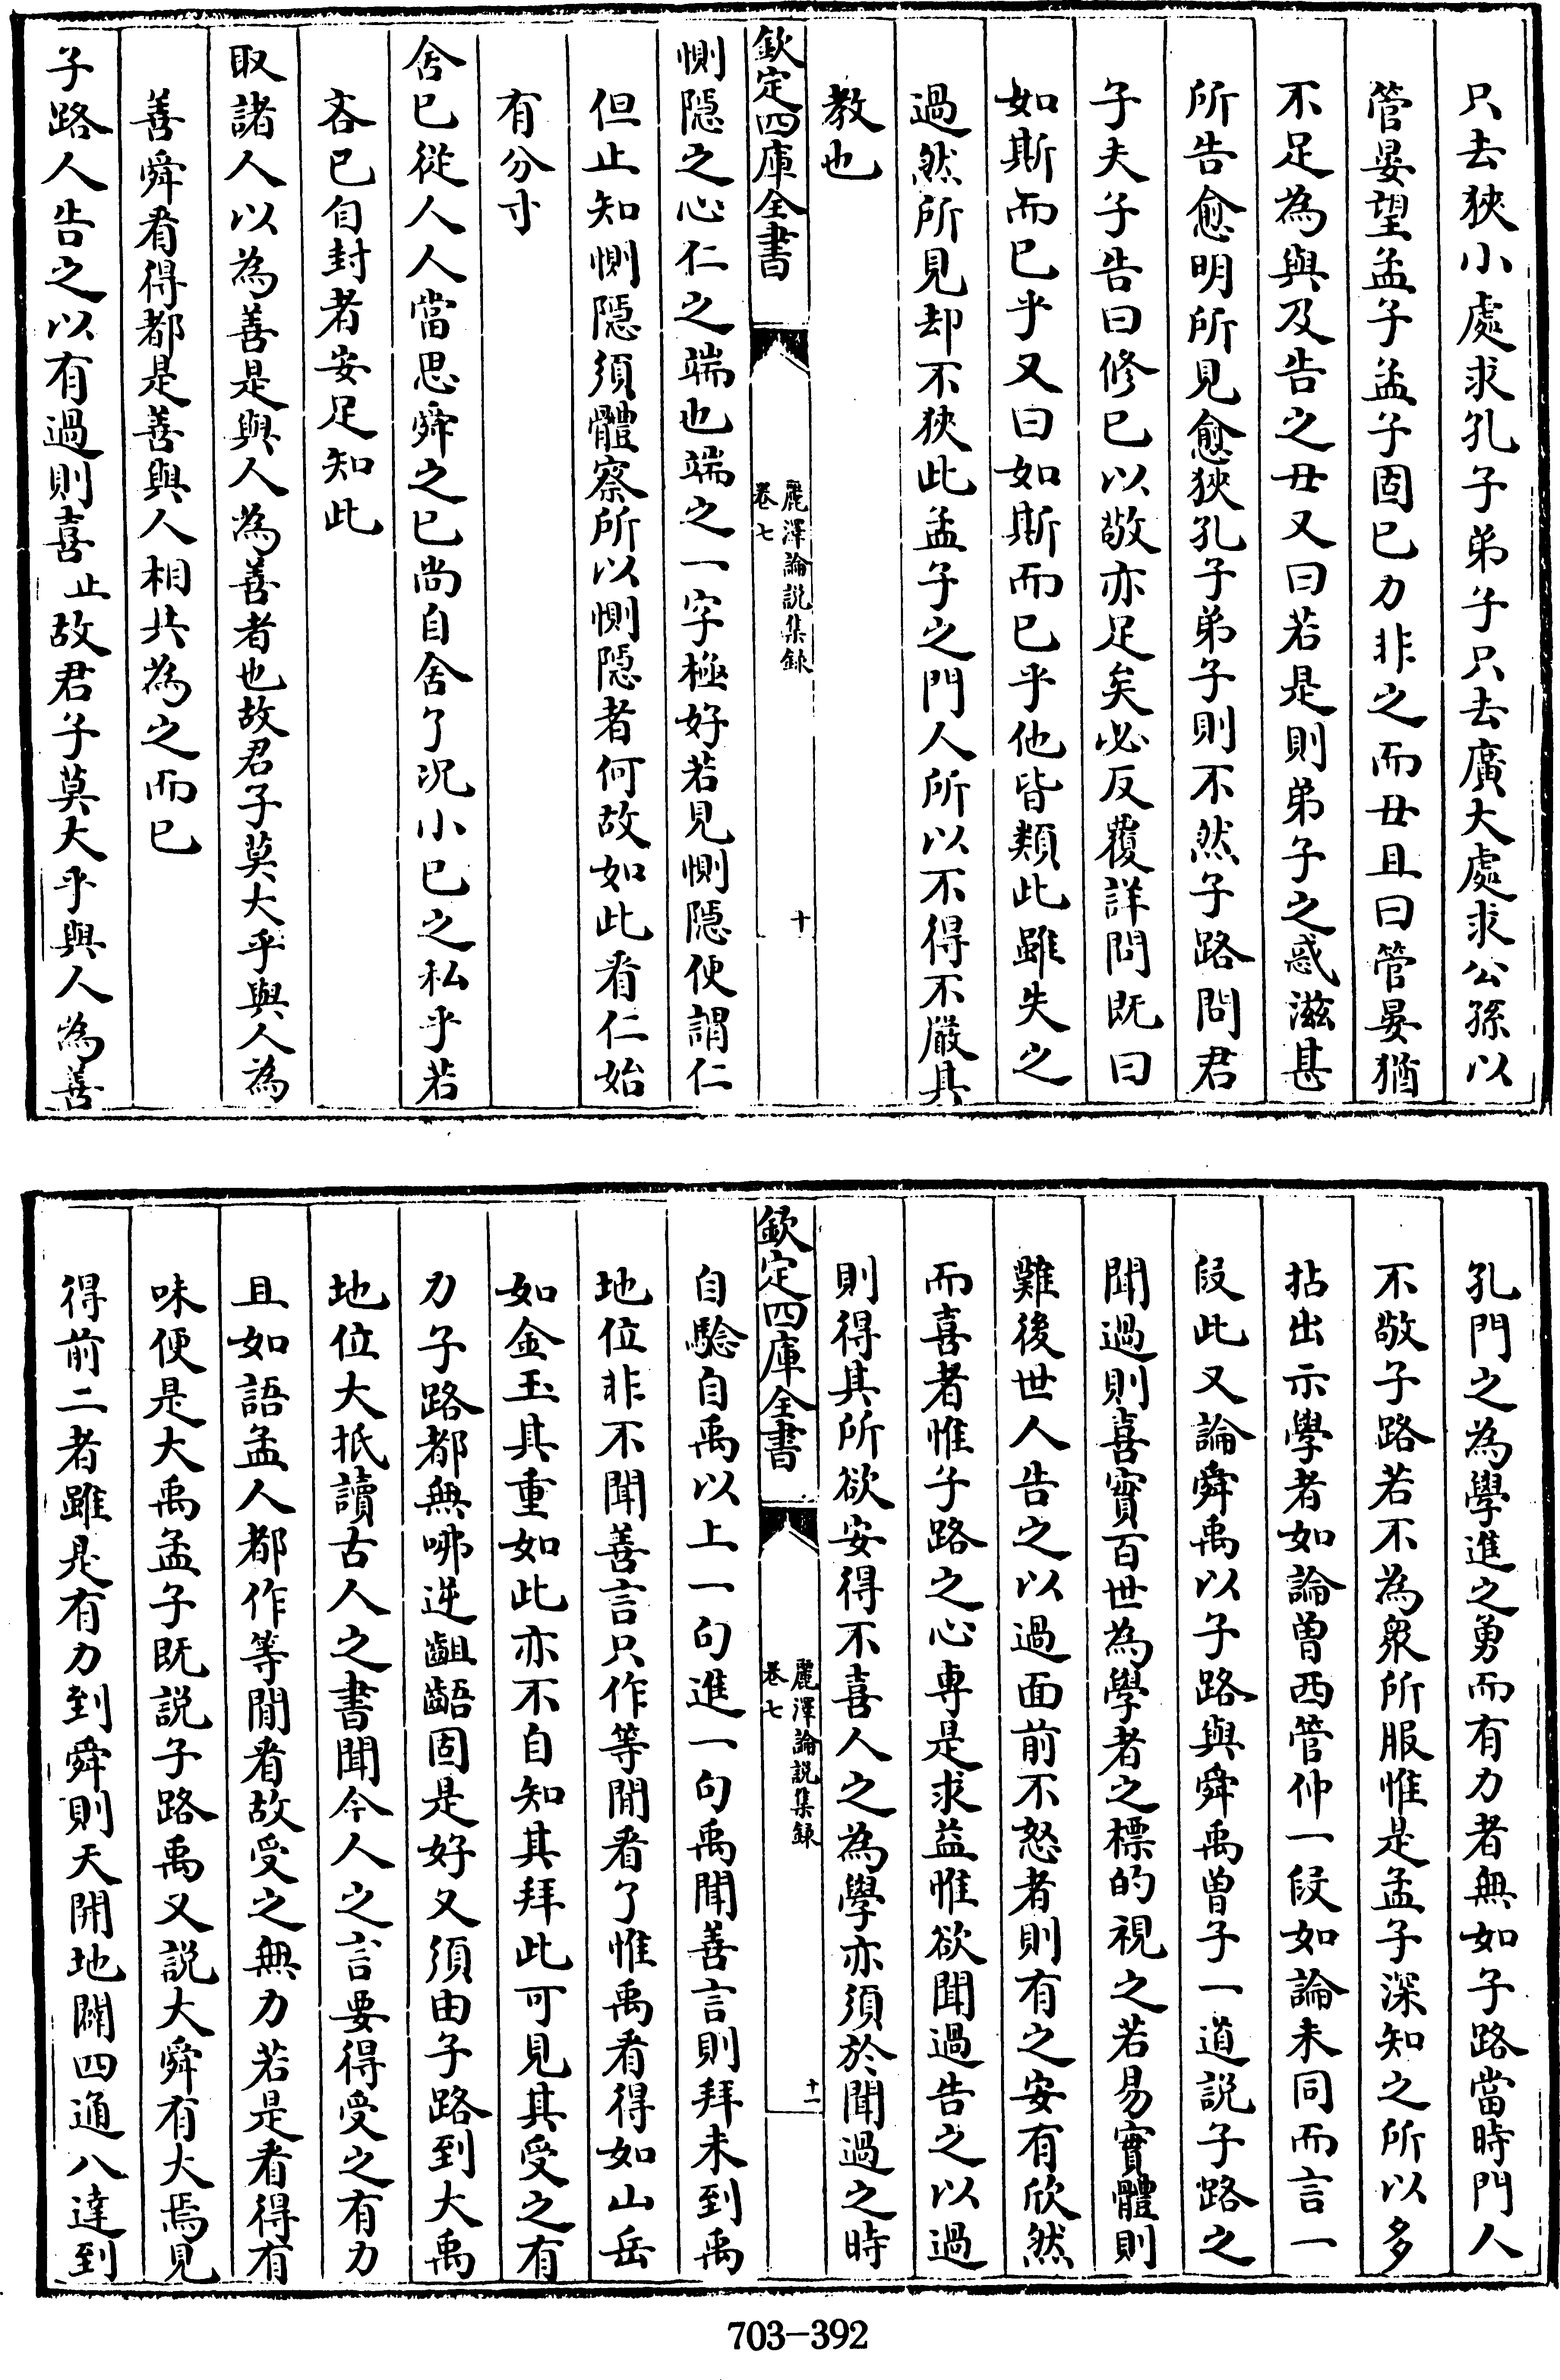 只去狹小處求孔子弟子只去廣大處求公孫以
管晏望孟子孟子固已力非之而丑且曰管晏猶
不足為與及告之丑又曰若是則弟子之惑滋甚
所告愈明所見愈狹孔子弟子則不然子路問君
子夫子告曰修已以敬亦足矣必反覆詳問既曰
如斯而已乎又曰如斯而已乎他皆類此雖失之
過然所見却不狹此孟子之門人所以不得不嚴其
教也
欽定四庫全書
麗澤論說集録
卷七
十
惻隠之心仁之端也端之一字極好若見惻隠便謂仁
但止知惻隠須體察所以惻隠者何故如此看仁始
有分寸
舍已從人人當思舜之已尚自舍了况小已之私乎若
吝已自封者安足知此
取諸人以為善是與人為善者也故君子莫大乎與人為
善舜看得都是善與人相共為之而已
子路人告之以有過則喜止故君子莫大乎與人為善
孔門之為學進之勇而有力者無如子路當時門人
不敬子路若不為衆所服惟是孟子深知之所以多
拈出示學者如論曽西管仲一段如論未同而言一
段此又論舜禹以子路與舜禹曽子一道說子路之
聞過則喜實百世為學者之標的視之若易實體則
難後世人告之以過面前不怒者則有之安有欣然
而喜者惟子路之心専是求益惟欲聞過告之以過
則得其所欲安得不喜人之為學亦須於聞過之時
欽定四庫全書
麗澤論說集録
卷七
十一
自驗自禹以上一句進一句禹聞善言則拜未到禹
地位非不聞善言只作等閒看了惟禹看得如山岳
如金玉其重如此亦不自知其拜此可見其受之有
力子路都無咈逆齟齬固是好又須由子路到大禹
地位大抵讀古人之書聞今人之言要得受之有力
且如語孟人都作等閒看故受之無力若是看得有
味便是大禹孟子既說子路禹又說大舜有大焉見
得前二者雖是有力到舜則天開地闢四通八達到
703-392